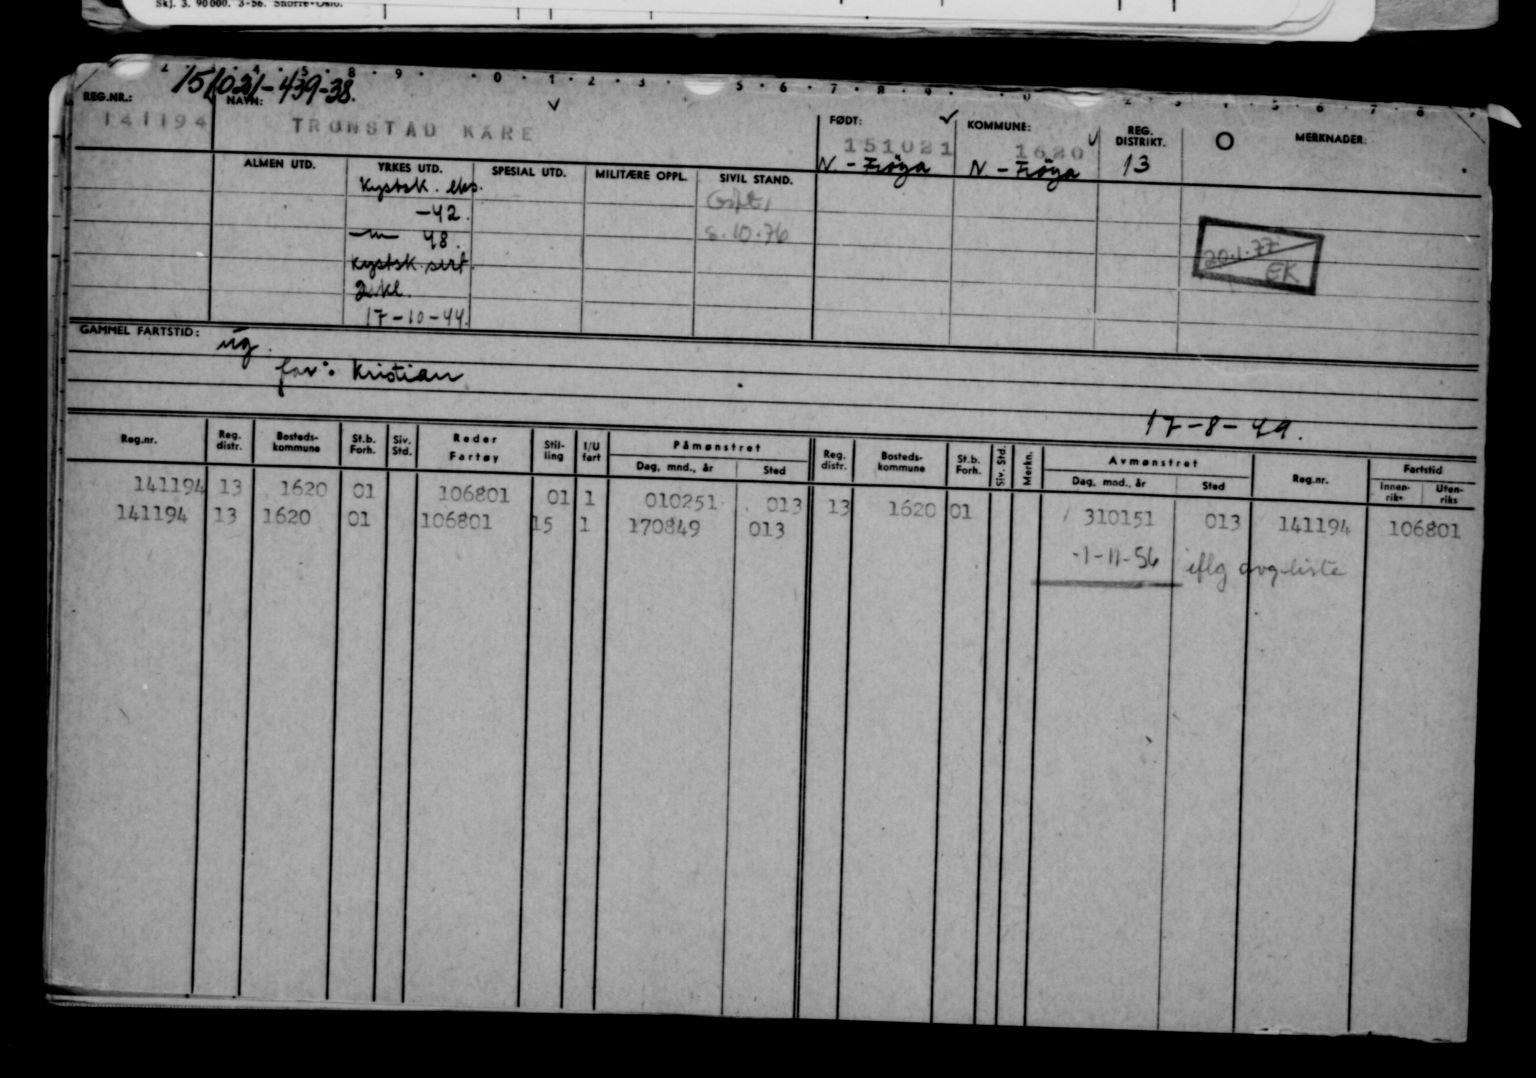 Skj. 3. 90000. 3-56. Snorre-Oslo.
151021-439-38.
REG.NR.: NAVN: FØDT: KOMMUNE: REG. DISTRIKT. O MERKNADER:
141194 TRONSTAD KÅRE 151021 1620 13
N. - Fröya N - Fröya
ALMEN UTD. YRKES UTD. SPESIAL UTD. MILITÆRE OPPL. SIVIL STAND.
Kystsk. eks. Gift,
-42. 8.10.76
48. 20.1.77
Kystsk. sert. EK
2.kl.
17-10-44.
GAMMEL FARTSTID: ug.
far: Kristian
17-8-49.
Reg.nr. Reg. distr. Bosteds- kommune St.b. Forh. Siv. Std. Reder Fartøy Stil- ling I/U fart Påmønstret Dag, mnd., år Sted Reg. distr. Bosteds- kommune St.b. Forh. Siv. Std. Merkn. Avmønstret Dag, mnd., år Sted Reg.nr. Fartstid Innen- riks Uten- riks
141194 13 1620 01 106801 01 1 010251 013 13 1620 01 310151 013 141194 106801
141194 13 1620 01 106801 15 1 170849 013
1-11-56 iflg avg.liste